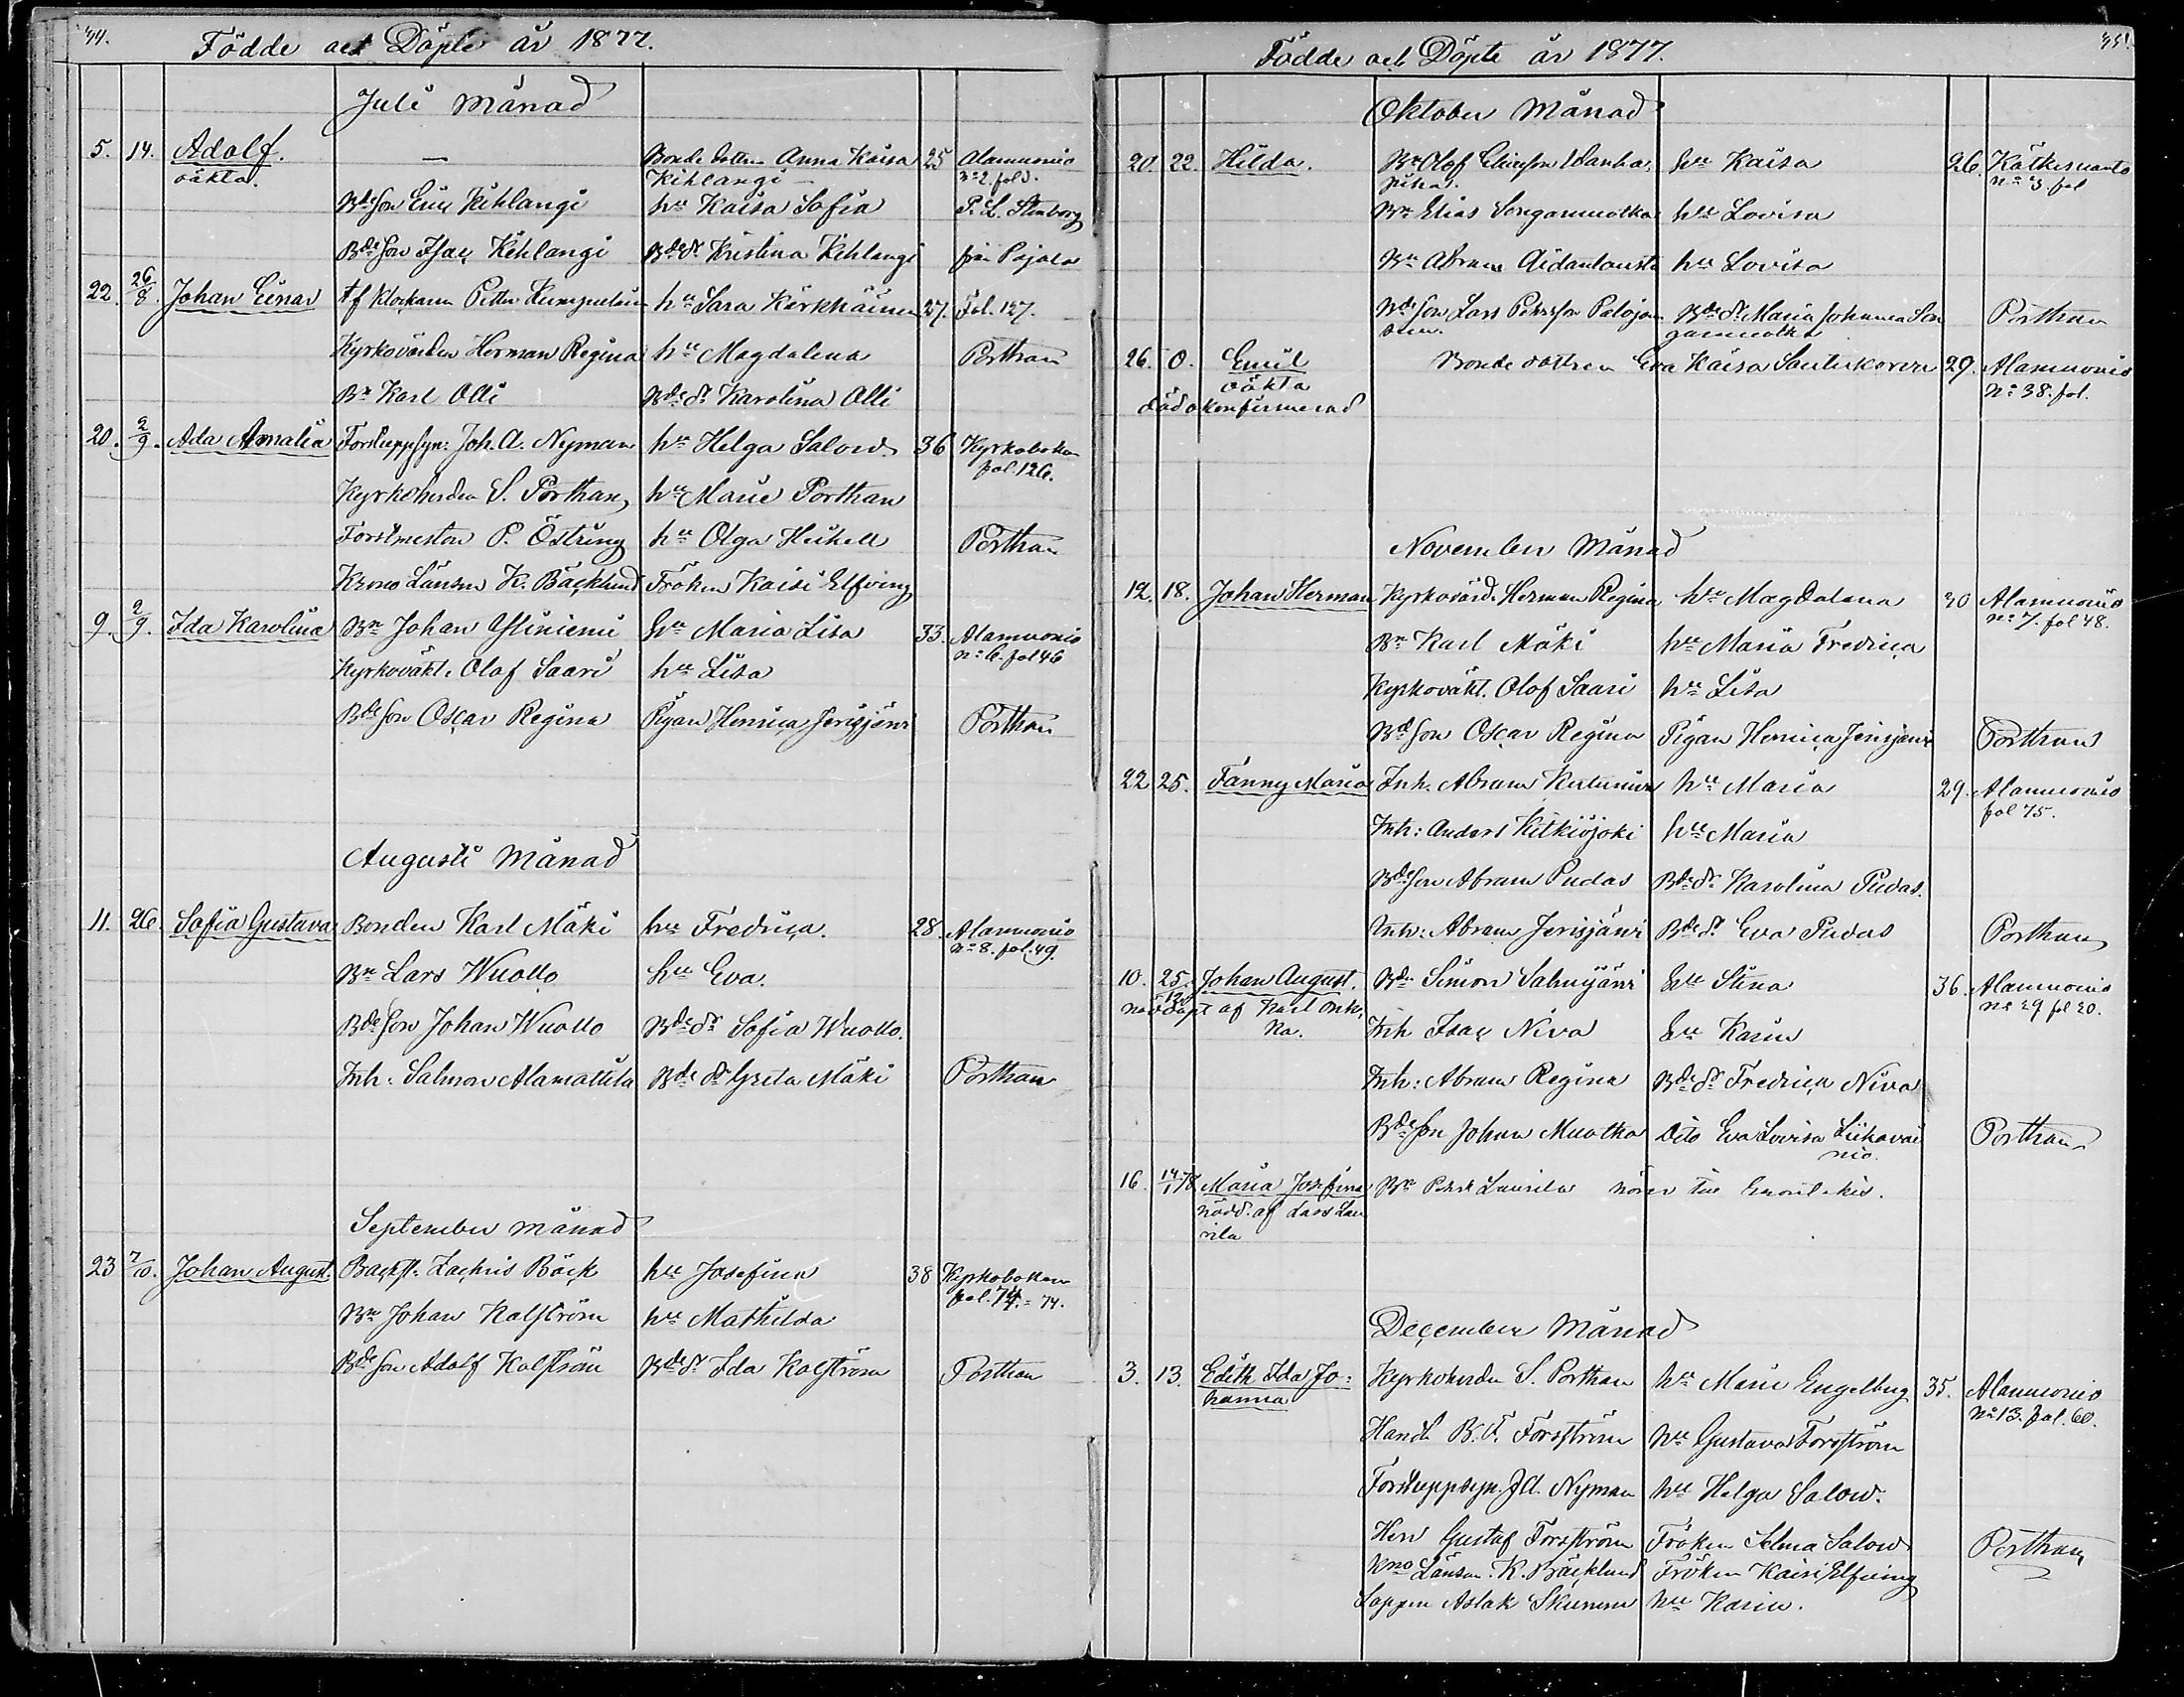 44.
Födde och Döpte år 1877.
Juli Månad
5. 14. Adolf. — Bonde dottren Anna Kaisa 25 Alamuonio
oäkta. Kihlangi — N:o 2. fol
Bde Son Eric Kihlangi hu Kaisa Sofia P. L. Stenborg
Bde Son Isac Kihlangi Bde dr Kristina Kihlangi från Pajala
22. 26/8. Johan Einar Af Klockaren Petter hu Sara 27. Fol. 127.
Kyrkovärden Herman Regina hu Magdalena Porthan
Bn Karl Olli Bde dr Karolina Olli
20. 2/9. Ada Amalia Forstuppsyn: Joh. A. Nyman hu Helga Salow 36 Kyrkoboken
fol. 126.
Kyrkoherden S. Porthan hu Marie Porthan
Forstmesten P. Östring hu Olga Porthan
Krono Länsm K. Bäcklund Fröken Kaisi Elfving
9. 2/9. Ida Karolina Bn Johan Yliniemi hu Maria Lisa 33. Alamuonio
N:o 6. fol 46
Kyrkoväkt. Olof Saari hu Lisa
Bde Son Oscar Regina Pigan Henrica Jerisjärvi Porthan
Augusti Månad
11. 26. Sofia Gustava Bonden Karl Mäki hu Fredrica. 28. Alamuonio
N:o 8. fol. 49.
Bn Lars Wuollo hu Eva.
Bde Son Johan Wuollo Bde dr Sofia Wuollo.
Inh: Salmon Alamattila Bde dr Greta Mäki Porthan
September månad
23 7/10. Johan August. Backst. Zachris Bäck hu Josefina 38 Kyrkoboken
fol. 74. = 74.
Bn Johan Kolström hu Mathilda
Bde Son Adolf Kolström Bde dr Ida Kolström Porthan
Födde och Döpte år 1877.
Oktober Månad
20. 22. Hilda. Bn Olof hu Kaisa 26. Kätkesuanto
N:o 3. fol
Bn Elias Songamuotka hu Lovisa
Bn Abram hu Lovisa
Bde Son Lars Petersson Palojoen Bde dr Maria Johanna Son Porthan
gamuotka
26. 0. Emil Bonde dottren Eva Kaisa 29. Alamuonio
oäkta N:o 38. fol.
död okonfirmerad
November Månad
12. 18. Johan Herman Kyrkovärd. Herman Regina hu Magdalena 30 Alamuonio
N:o 7. fol 48.
Bn Karl Mäki hu Maria Fredrica
Kyrkoväkt. Olof Saari hu Lisa
Bd Son Oscar Regina Pigan Henrica Jerisjärvi Porthan
22 25. Fanny Maria Inh. Abram hu Maria 29. Alamuonio
fol 75.
Inh: Anders Kitkiöjoki hu Maria
Bde Son Abram Pudas Bde dr Karolina Pudas.
Inh: Abram Jerisjärvi Bde dr Eva Pudas Porthan
10. 25. Johan August. Bde Simon Salmijärvi hu Stina 36. Alamuonio
nöddöpt af Karl N:o 29 fol 20.
Inh Isac Niva hu Karin
Inh: Abram Regina Bde dr Fredrica Niva
Bde Son Johan Muotka Dito Eva Lovisa Liikavai Porthan
nio.
16. 14/1 78 Maria Josefina Bn Peter Laurila hörer till Enontekis.
nödd. af Lars Lau
rila
December Månad
3. 13. Edith Ida Jo: Kyrkoherden S. Porthan hu Marie Engelberg 35. Alamuonio
hanna N:o 13. fol. 60.
Handl B. F. Forsström hu Gustava Forsström
Forstuppsyn. J A. Nyman hu Helga Salow.
Herr Gustaf Forsström Fröken Selma Salow Porthan
Kno Länsm. K. Bäcklund Fröken Kaisi Elfving
Lappen Aslak hu Karin.